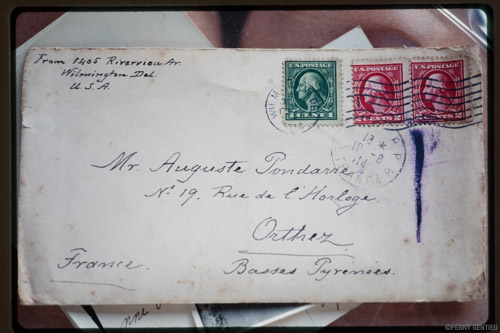 From 1405 Riverview Av.
Wilmington Del.
U.S.A.
U.S. POSTAGE
1 CENT 1
U.S. POSTAGE
2 CENTS 2
U.S. POSTAGE
2 CENTS 2
Mr. Auguste Pondarre
No 19, Rue de l'Horloge.
Orthez
France.
Basses Pyrénées.
©PENNY GENTIEU